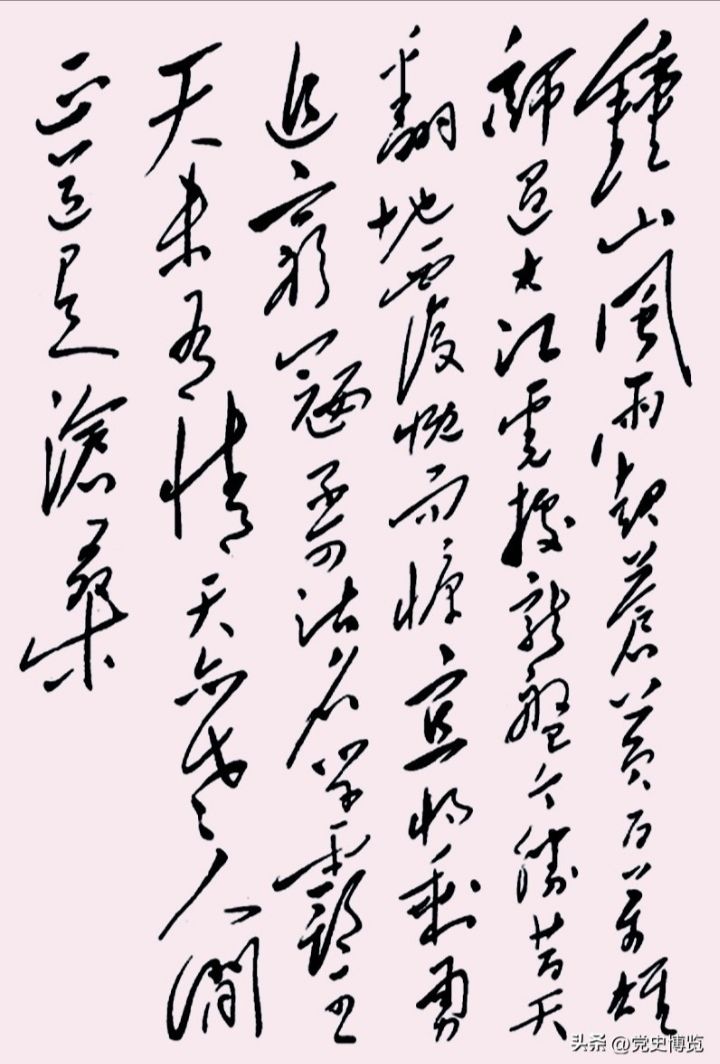 鍾山風雨起蒼黄百萬雄
師過大江虎據龍盤今勝昔天
翻地覆慨而慷宜將剩勇
追窮寇不可沽名學霸王
天未有情天亦老人間
正道是滄桑
头条 @党史博览